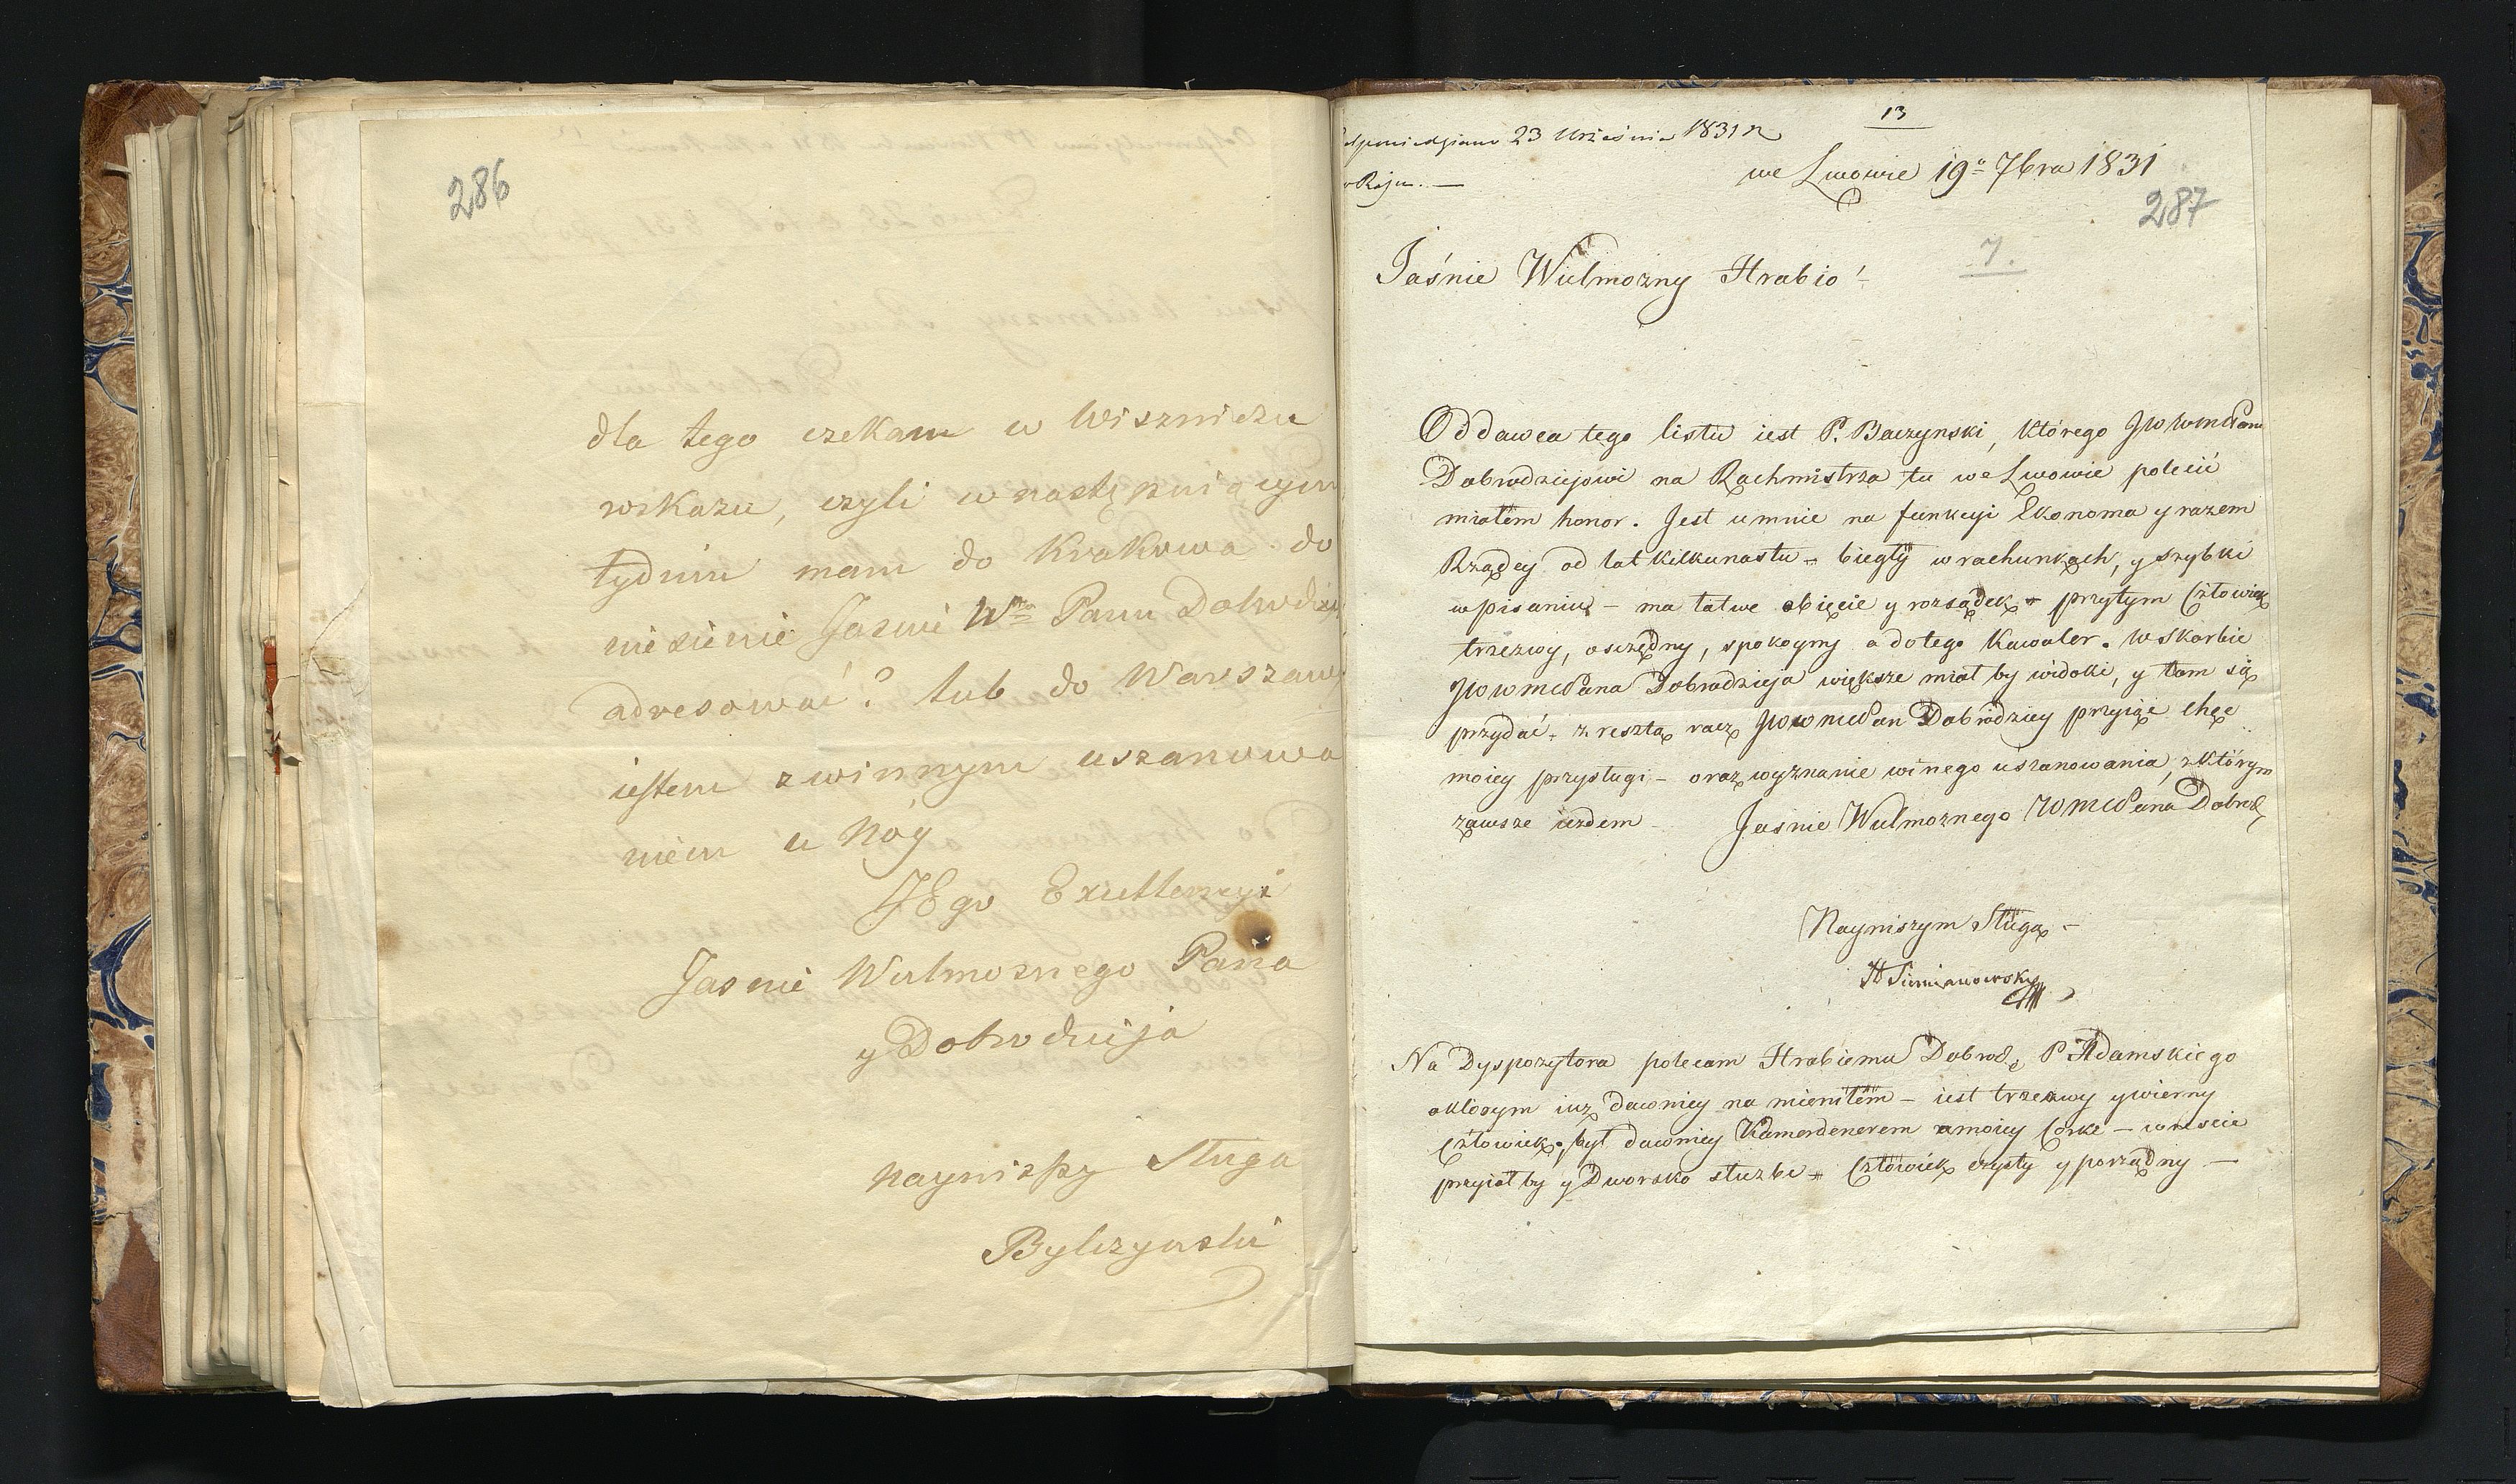 286
dla tego czekam w Wiszniczu
wskazu, czyli w nastę puiącym
tydniu mam do Krakowa do
niesienie Jasnie Wo Panu Dobrodzi
adresować? lub do Warszawy
iestem z winnym uszanowa
niem u Nóg
JEgo Excellencyi
Jasnie Wielmoznego Pana
y Dobrodzieja
nayniszy Sługa
Bylczynski
13
dpowiedziano 23 Września 1831 R
w Raju. —
we Lwowie 19o 7bra 1831
287
7.
Jaśnie Wielmozny Hrabio!
Oddawca tego listu iest P. Baczynski, którego JWWmcPanu
Dobrodziejowi na Rachmistrza tu we Lwowie polecić
miałem honor. Jest u mnie na funkcyi Ekonoma y razem
Rządcy od lat kilkunastu = biegły w rachunkach, y szybki
w pisaniu – ma łatwe obięcie y rozsądek = przytym Człowiek
trzezwy, osczędny, spokoyny a do tego Kawaler. W Skarbie
JWWmcPana Dobrodzieja większe miał by widoki, y tam się
przydać. z resztą racz JWWmcPan Dobrodziey przyiąć chęć
moiey przysługi – oraz wyznanie winego uszanowania, z którym
zawsze iezdem – Jasnie Wielmoznego WMcPana Dobrodz
Nayniszym Sługą –
Na Dyspozytora polecam Hrabiemu Dobrodz. P Adamskiego
o którym iuż dawniey na mieniłem – iest trzezwy y wierny
Człowiek, był dawniey Kamerdenerem u moiey Corke – w reście
przyiął by y Dworsko służbe = Człowiek czysty y porządny —